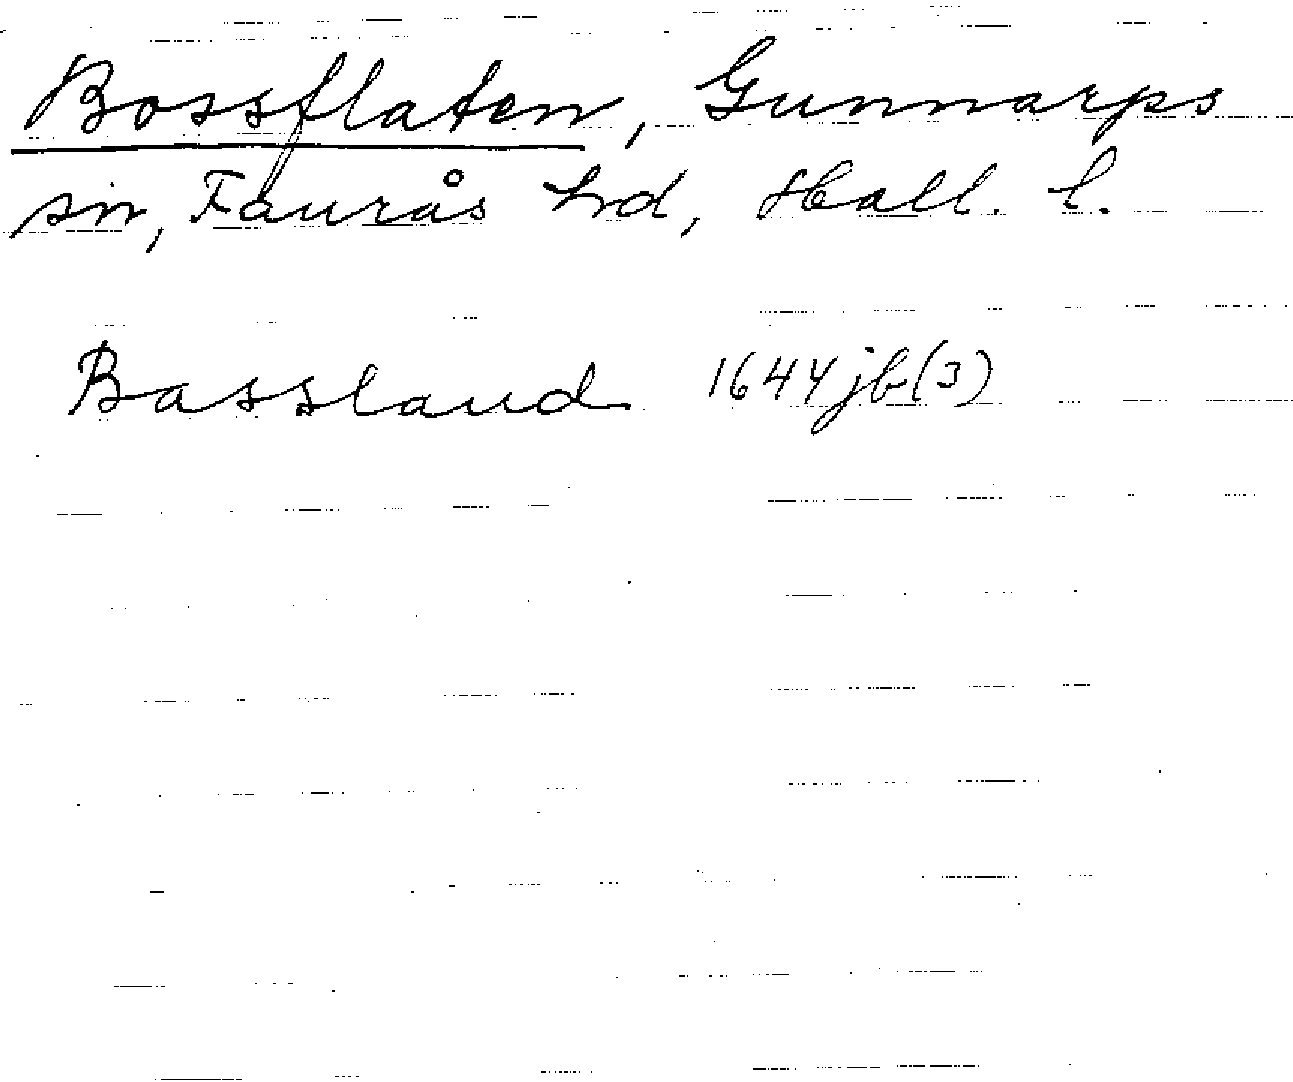 Bossflaten, Gunnarps
sn, Faurås hd, Hall. l.
Bassland 1644 jb (3)